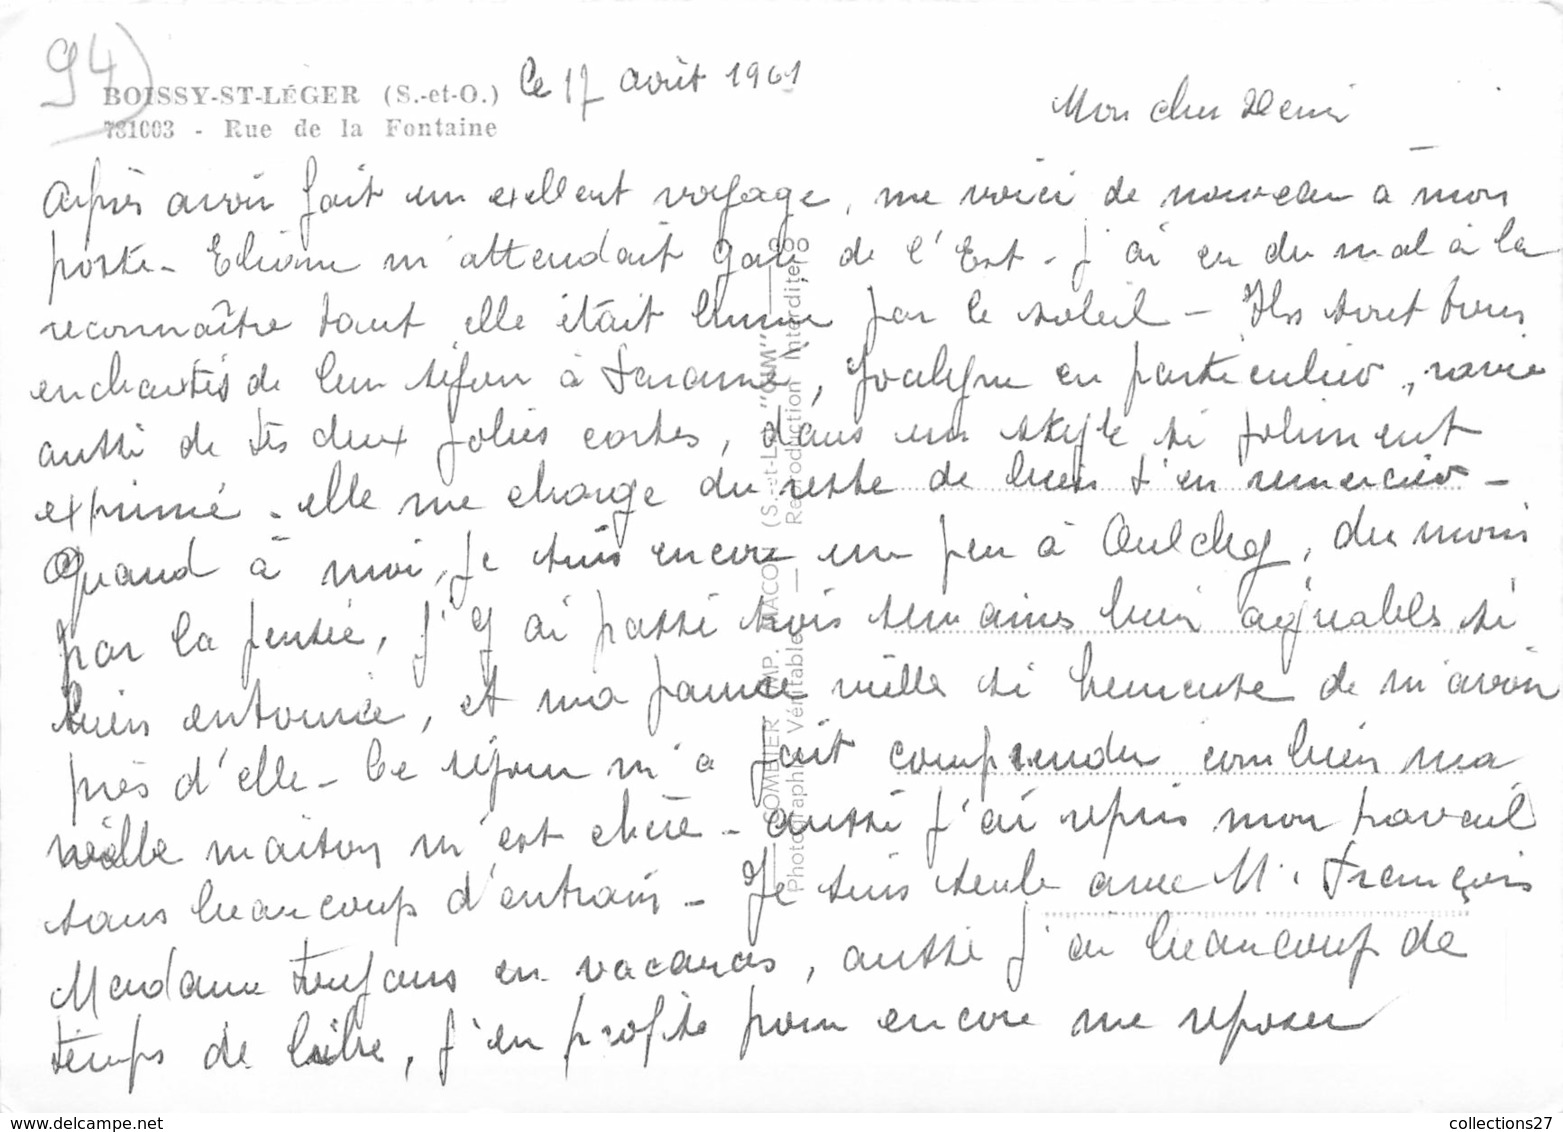 94)
BOISSY-ST-LÉGER (S.-et-O.) le 17 août 1961
781003 - Rue de la Fontaine
Mon cher Denis
Après avoir fait un excellent voyage, me voici de nouveau à mon
poste - Eliane m'attendait gare de l'Est - j'ai eu du mal à la
reconnaître tant elle était brunie par le soleil - Ils sont tous
enchantés de leur séjour à, Jocelyne en particulier, ravie
aussi de tes deux jolies cartes, dans un style si joliment
exprimé - elle me charge du reste de bien t'en remercier -
Quand à moi, je suis encore un peu à Oulchy, du moins
par la pensée, j'y ai passé trois semaines bien agréables si
bien entourée, et ma pauvre vieille si heureuse de m'avoir
près d'elle - Ce séjour m'a fait comprendre combien ma
vieille maison m'est chère - aussi j'ai repris mon travail
sans beaucoup d'entrain - Je suis seule avec M. François
Madame toujours en vacances, aussi j'ai beaucoup de
temps de libre, j'en profite pour encore me reposer
COMBIER IMP. MACON (S.-et-L.) "CIM"
Photographie Véritable — Reproduction Interdite
collections27